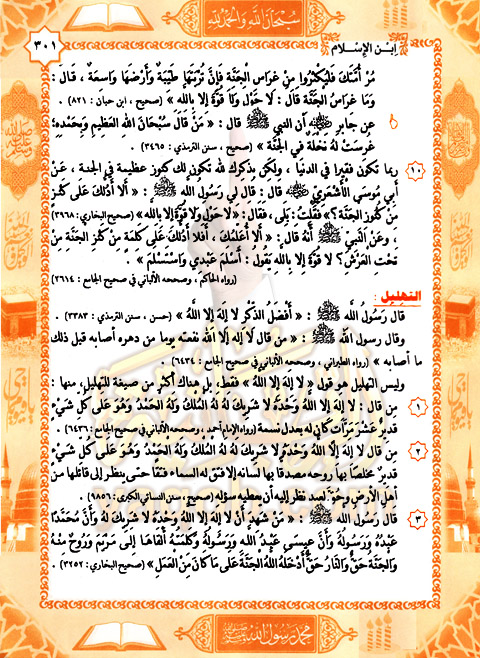 سبحان الله والحمد لله
٣٠١
ابن الإسلام
مُرْ أُمَّتَكَ فَلْيُكْثِرُوا مِنْ غِرَاسِ الْجَنَّةِ فَإِنَّ تُرْبَتَهَا طَيِّبَةٌ وَأَرْضَهَا وَاسِعَةٌ ، قال :
وَمَا غِرَاسُ الْجَنَّةِ قَالَ : لَا حَوْلَ وَلَا قُوَّةَ إِلَّا بِاللَّهِ » (صحيح ، ابن حبان : ٨٢١)
عن جابر ﷺ أن النبي ﷺ قال : « مَنْ قَالَ سُبْحَانَ اللَّهِ الْعَظِيمِ وَبِحَمْدِهِ؛
غُرِسَتْ لَهُ نَخْلَةٌ فِي الْجَنَّةِ » (صحيح ، سنن الترمذي : ٣٤٦٥)
١٠ ربما تكون فقيرا في الدنيا ، ولكن بذكرك لله تكون لك كنوز عظيمة في الجنة ، عَنْ
أَبِي مُوسَى الْأَشْعَرِيِّ قال : قال لي رسول الله ﷺ : « أَلَا أَدُلُّكَ عَلَى كَنْزٍ
مِنْ كُنُوزِ الْجَنَّةِ؟ » فقُلْتُ: بَلَى ، فقَالَ: « لَا حَوْلَ وَلَا قُوَّةَ إِلَّا بِاللَّهِ » (صحيح البخاري: ٣٩٦٨)
، وعَنْ النَّبِيِّ ﷺ أَنَّهُ قَالَ : « أَلَا أُعَلِّمُكَ ، أَفَلَا أَدُلُّكَ عَلَى كَلِمَةٍ مِنْ كَنْزِ الْجَنَّةِ مِنْ
تَحْتِ الْعَرْشِ؟ لَا قُوَّةَ إِلَّا بِاللَّهِ يَقُولُ : أَسْلَمَ عَبْدِي وَاسْتَسْلَمَ » .
(رواه الحاكم ، وصححه الألباني في صحيح الجامع : ٢٦١٤)
التهليل :
قال رَسُولُ اللَّهِ ﷺ : « أَفْضَلُ الذِّكْرِ لَا إِلَهَ إِلَّا اللَّهُ » (حسن ، سنن الترمذي : ٣٣٨٣)
وقال رسول الله ﷺ : « من قال لَا إِلَهَ إِلَّا اللَّهُ نفعته يوما من دهره أصابه قبل ذلك
ما أصابه » (رواه الطبراني ، وصححه الألباني في صحيح الجامع : ٦٤٣٤)
وليس التهليل هو قول « لَا إِلَهَ إِلَّا اللَّهُ » فقط، بل هناك أكثر من صيغة للتهليل، منها :
١ من قال : لَا إِلَهَ إِلَّا اللَّهُ وَحْدَهُ لَا شَرِيكَ لَهُ لَهُ الْمُلْكُ وَلَهُ الْحَمْدُ وَهُوَ عَلَى كُلِّ شَيْءٍ
قَدِيرٌ عَشْرَ مَرَّاتٍ كَانَ لَهُ بعدل نسمة (رواه الإمام أحمد ، وصححه الألباني في صحيح الجامع : ٦٤٣٦)
٢ من قال لَا إِلَهَ إِلَّا اللَّهُ وَحْدَهُ لَا شَرِيكَ لَهُ لَهُ الْمُلْكُ وَلَهُ الْحَمْدُ وَهُوَ عَلَى كُلِّ شَيْءٍ
قَدِيرٌ مخلصا بها روحه مصدقا بها لسانه إلا فتق له السماء فتقا حتى ينظر إلى قائلها من
أهل الأرض وحق لعبد نظر إليه أن يعطيه سؤله (صحيح ، سنن النسائي الكبرى : ٩٨٥٦)
٣ قال رسول الله ﷺ : « مَنْ شَهِدَ أَنْ لَا إِلَهَ إِلَّا اللَّهُ وَحْدَهُ لَا شَرِيكَ لَهُ وَأَنَّ مُحَمَّدًا
عَبْدُهُ وَرَسُولُهُ وَأَنَّ عِيسَى عَبْدُ اللَّهِ وَرَسُولُهُ وَكَلِمَتُهُ أَلْقَاهَا إِلَى مَرْيَمَ وَرُوحٌ مِنْهُ
وَالْجَنَّةُ حَقٌّ وَالنَّارُ حَقٌّ أَدْخَلَهُ اللَّهُ الْجَنَّةَ عَلَى مَا كَانَ مِنَ الْعَمَلِ » (صحيح البخاري : ٣٢٥٢)
محمد رسول الله ﷺ